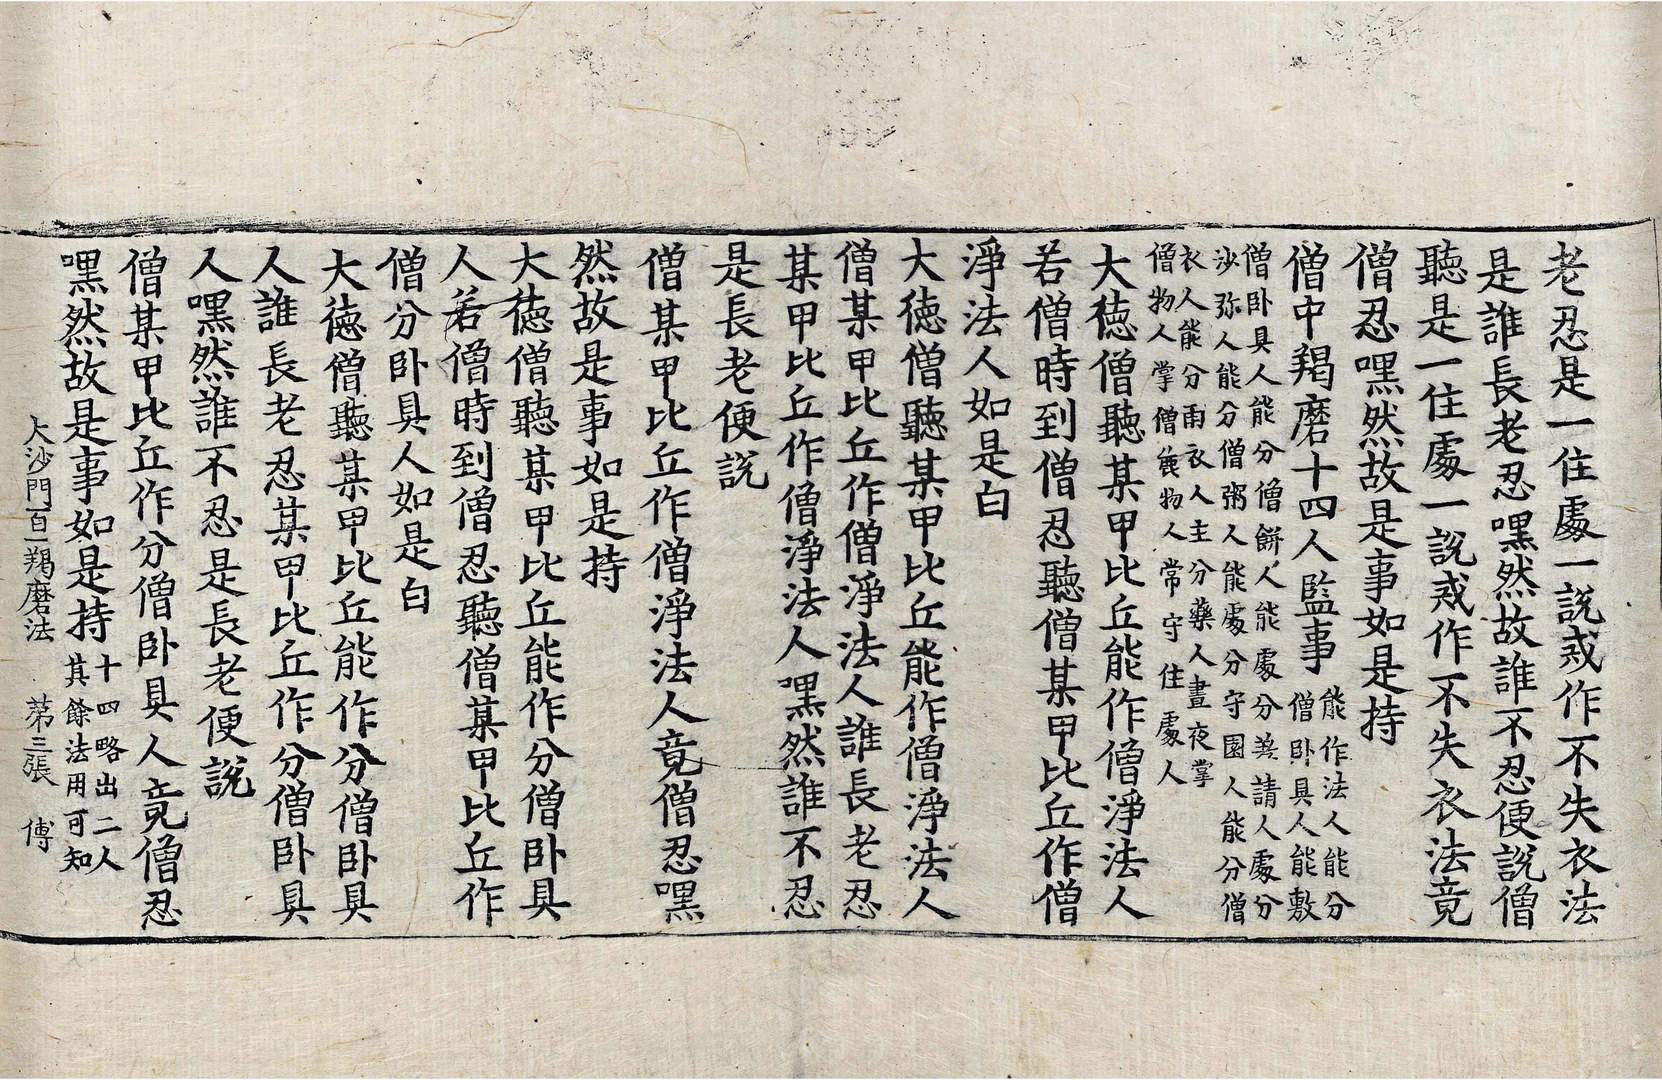 老忍是一住處一說戒作不失衣法
是誰長老忍嘿然故誰不忍便說僧
聽是一住處一說戒作不失衣法竟
僧忍嘿然故是事如是持
僧中羯磨十四人監事
能作法人能分
僧卧具人能敷
僧卧具人能分僧餅人能處分差請人處分
沙弥人能分僧粥人能處分守園人能分僧
衣人能分雨衣人主分藥人晝夜掌
僧物人掌僧雜物人常守住處人
大德僧聽某甲比丘能作僧淨法人
若僧時到僧忍聽僧某甲比丘作僧
淨法人如是白
大德僧聽某甲比丘能作僧淨法人
僧某甲比丘作僧淨法人誰長老忍
某甲比丘作僧淨法人嘿然誰不忍
是長老便說
僧某甲比丘作僧淨法人竟僧忍嘿
然故是事如是持
大德僧聽某甲比丘能作分僧卧具
人若僧時到僧忍聽僧某甲比丘作
僧分卧具人如是白
大德僧聽某甲比丘能作分僧卧具
人誰長老忍某甲比丘作分僧卧具
人嘿然誰不忍是長老便說
僧某甲比丘作分僧卧具人竟僧忍
嘿然故是事如是持
十四略出二人
其餘法用可知
大沙門百一羯磨法 第三張 傅